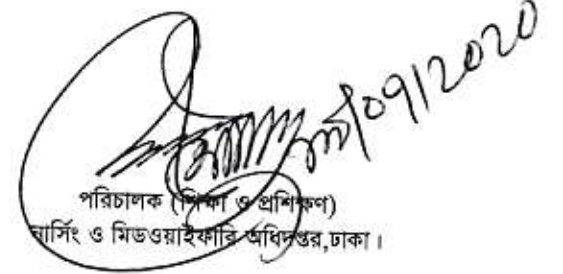 ০৭/২০২০
পরিচালক (শিক্ষা ও প্রশিক্ষণ)
নার্সিং ও মিডওয়াইফারি অধিদপ্তর,ঢাকা।